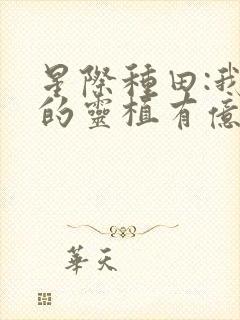 星際種田:我
的靈植有億
華天